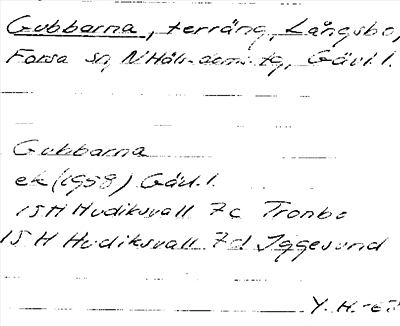 Gubbarna, terräng, Långsbo,
Forsa sn, N Häls. doms. tg, Gävl. l.
Gubbarna
ek (1958) Gävl. l.
15H Hudiksvall 7c Tronbo
15H Hudiksvall 7d Iggesund
Y. H. -63